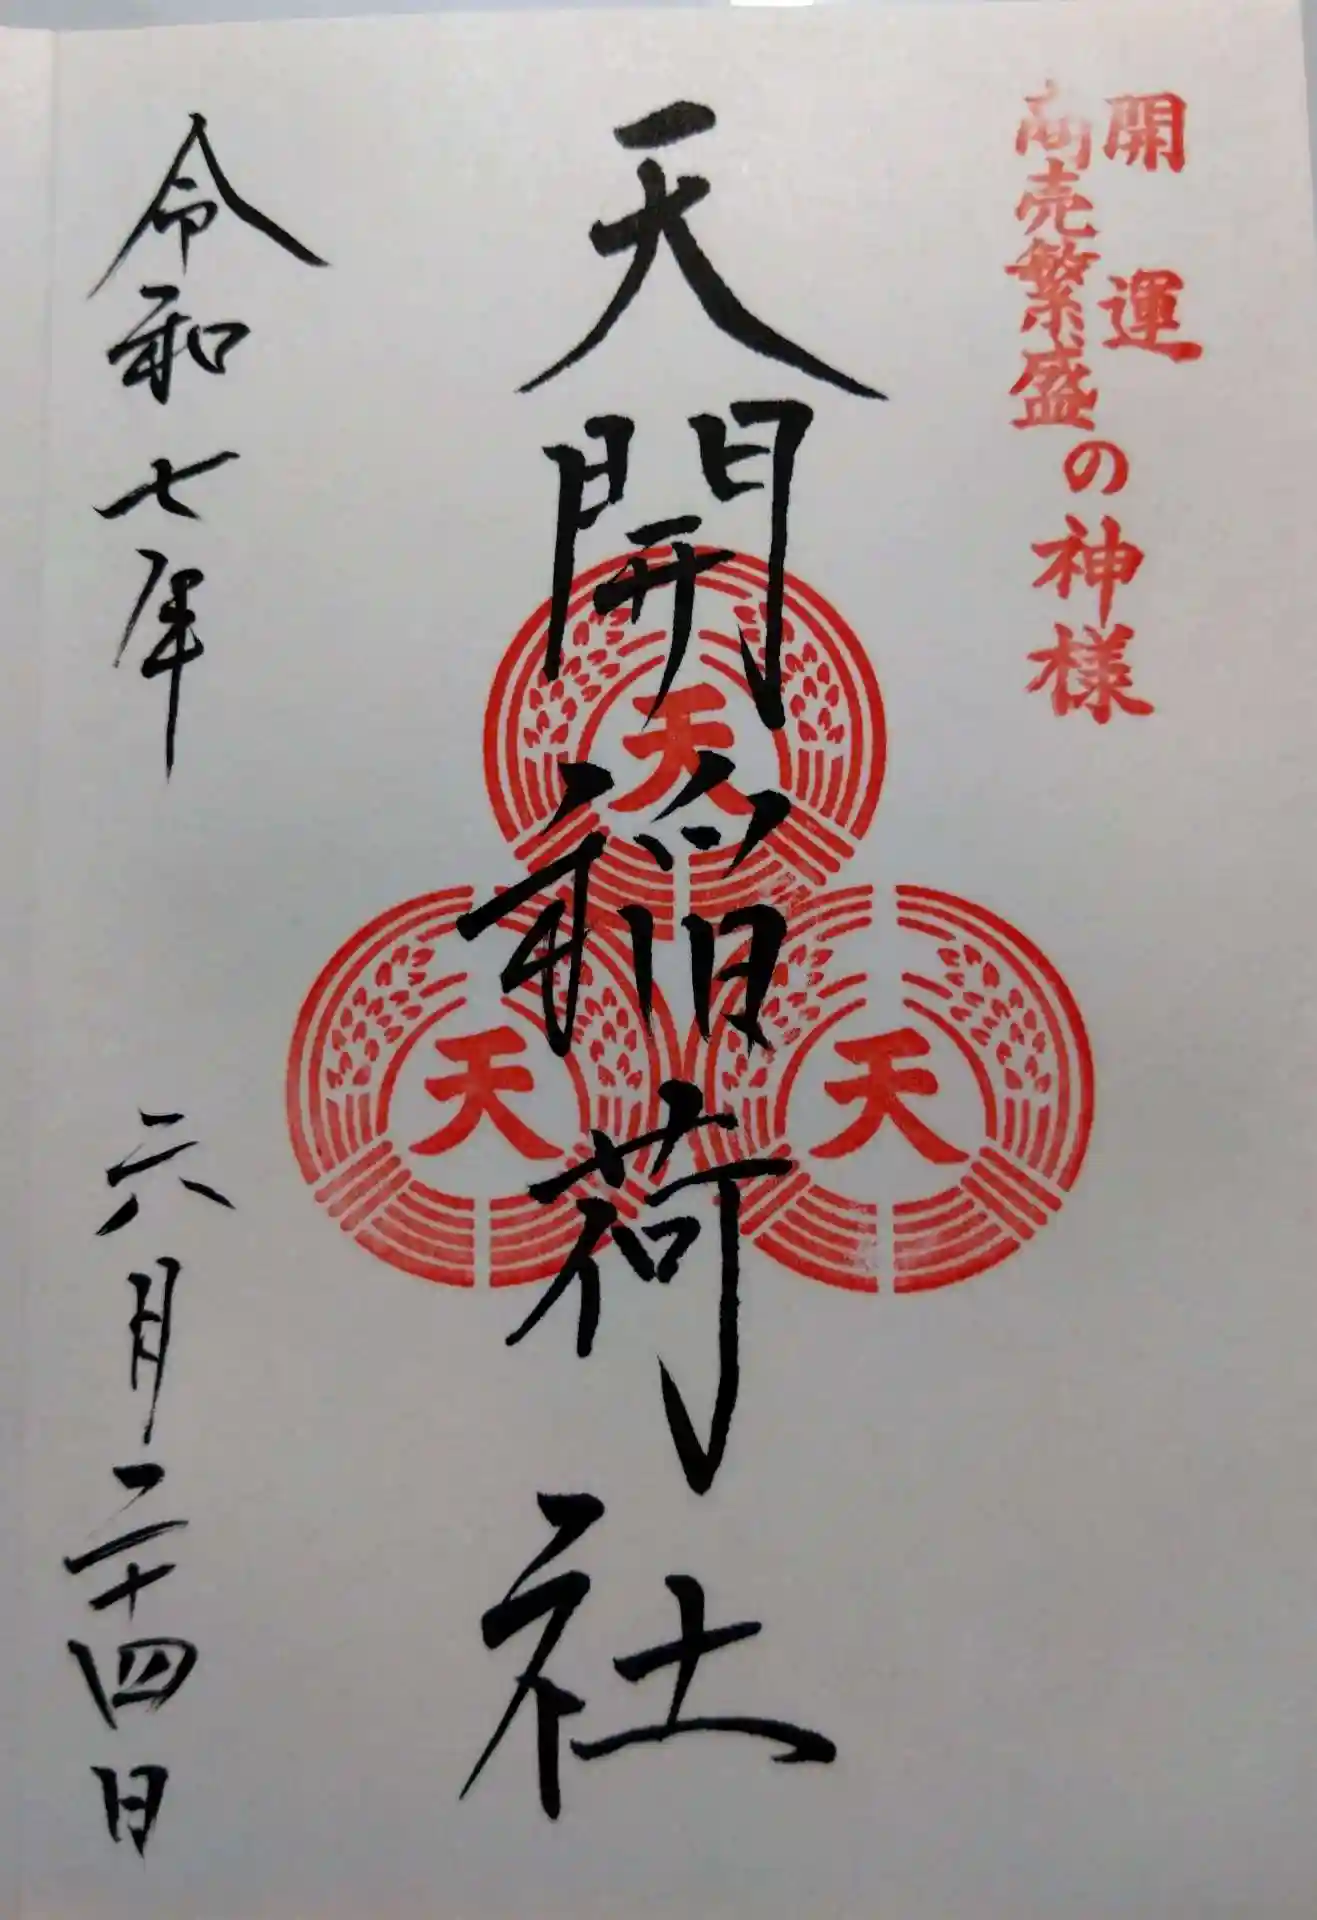 開運
商売繁盛
の神様
天開稲荷社
天
天
天
令和七年 六月二十四日